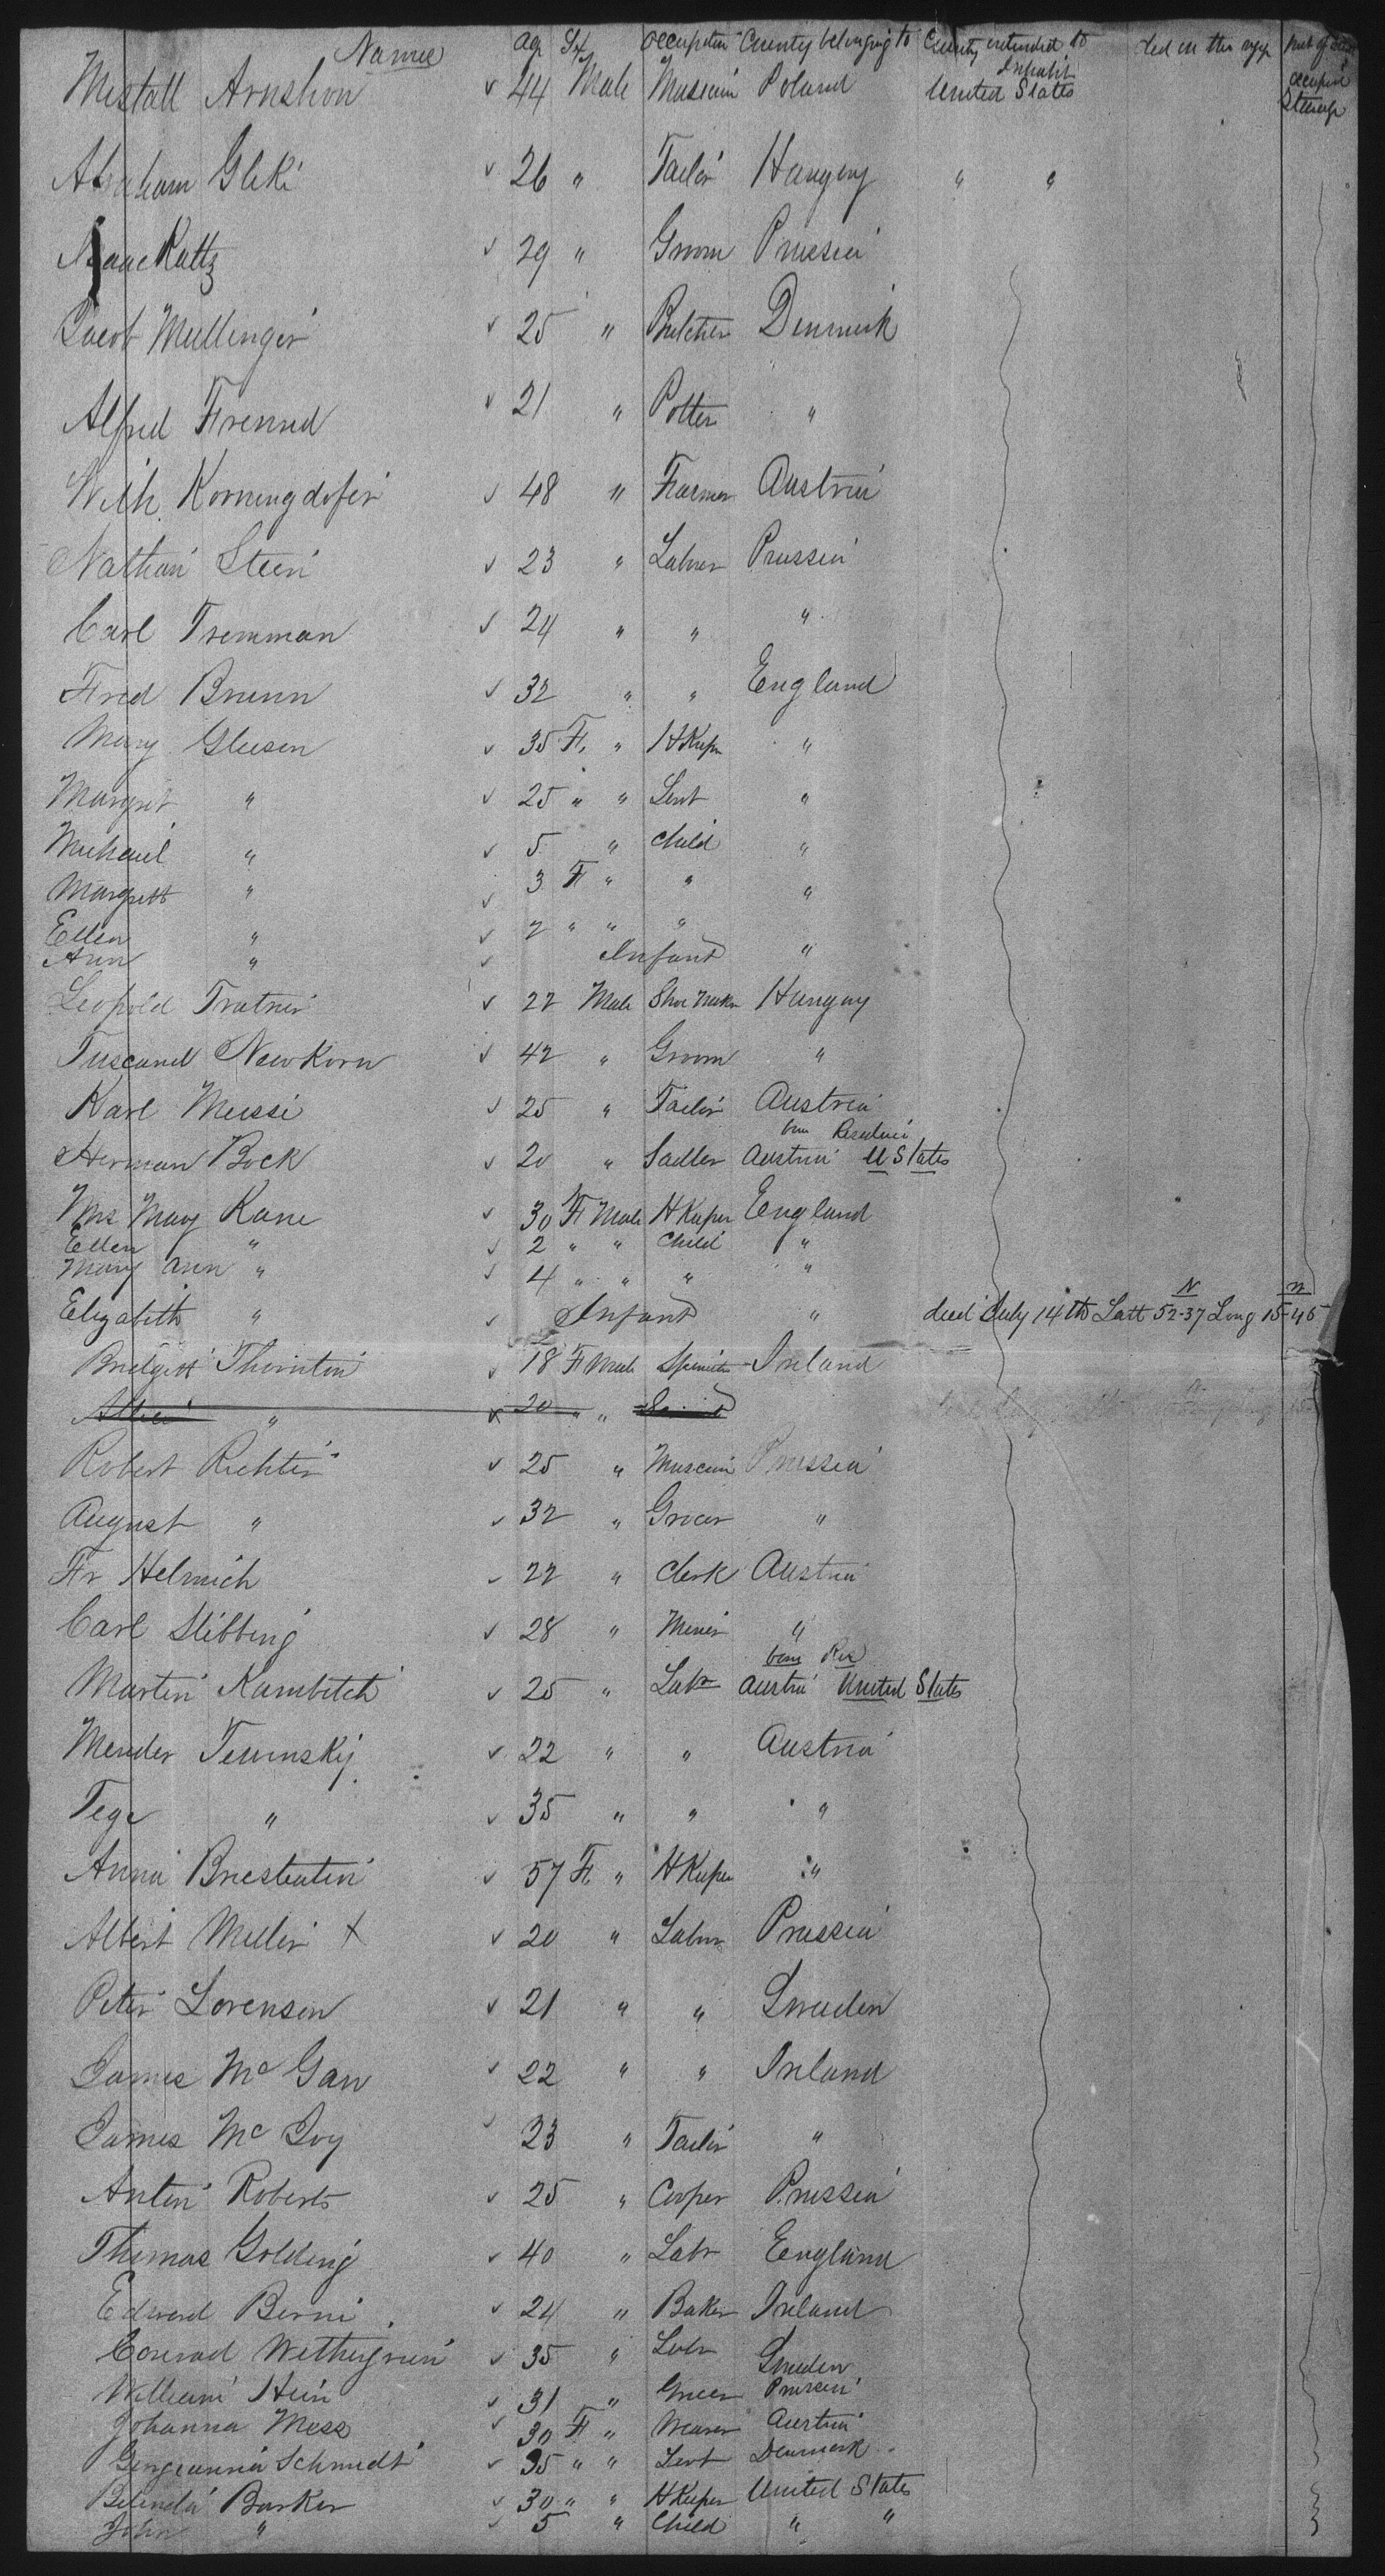 Names Age Sex Occupation County belonging to County intended to Inhabit died on the voyage Part of occupied
Mistall Arnshon 44 Male Musician Poland United States Steerage
Abraham Gleki 26 " Tailor Hungery " "
Isaac Kattz 29 " Groom Prussia
Jacob Mullenger 25 " Butcher Denmark
Alfred Frennd 21 " Potter "
Wilh Korningdofer 48 " Farmer Austria
Nathan Stein 23 " Labner Prussia
Carl Tremman 24 " " "
Fred Brunn 32 " " England
Mary Gleeson 35 F. " H Keeper "
Margret " 25 " " Sevt "
Michael " 5 " child "
Margrett " 3 F " " "
Ellen " 2 " " "
Ann " Infant "
Leopold Tratner 22 Male Shoe maker Hungary
Tuscand NewKorn 42 " Groom "
Karl Meissi 25 " Tailor Austria
born Residence
Herman Bock 20 " Sadler Austria U States
Mrs Mary Kane 30 F Male H Keeper England
Ellen " 2 " " Child "
Mary Ann " 4 " " " "
Elizabeth " Infant " died July 14th Latt 52-37 N Long 15-45 W
Bridgett Thornton 18 F Male Spinster Ireland
" 20 " "
Robert Richter 25 " Musecian Prussia
August " 32 " Grocer "
Fr Helmich 22 " Clerk Austria
Carl Stibbing 28 " Miner "
born Res
Martin Kambitch 25 " Labr Austria United States
Mender Tewinsky 22 " " Austria
Tege " 35 " " "
Anna Briestentin 57 F " H Keeper "
Albert Muller X 20 " Labur Prussia
Peter Lorenson 21 " " Sweden
James Mc Gaw 22 " " Ireland
James Mc Ivy 23 " Tailor "
Anton Roberts 25 " Cooper Prussia
Thomas Golding 40 " Labr England
Edward Berni 24 " Baker Ireland
Conrad Wethergrun 35 " Labr Sweden
William Hein 31 " Grocer Prussia
Johanna Mess 30 F " Weaver Austria
Georgeanna Schmidt 35 " " Sevt Denmark
Belenda Barker 30 " " H Keeper United States
John " 5 " Child " "